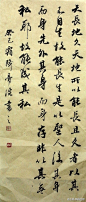 天長地久天地所以能長且久者以其
不自生故能長生是以聖人後其
身而身先外其身而身存非以其無
私邪故能成其私
癸巳